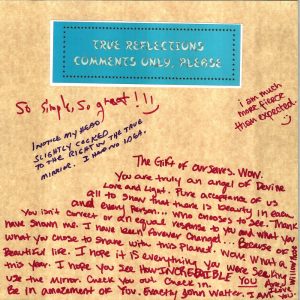 TRUE REFLECTIONS
COMMENTS ONLY, PLEASE
So simple, so great!!!
i am much
more fierce
than expected.
I NOTICE MY HEAD
SLIGHTLY COCKED
TO THE RIGHT IN THE TRUE
MIRROR. I HAD NO IDEA.
The Gift of ourselves. WOW.
You are truly an angel of Devine
Love and Light. Pure acceptance of us
all to show that there is beauty in each
and every Person... who chooses to see. Thank
You isn't correct or all of my response to you and what you
have shown me. I have been forever changed... Because of
what you chose to share with this planet. WOW. What a
Beautiful life. I hope it is everything you were seeking
this year. I hope you see HOW INCREDIBLE YOU ARE
use the mirror. Check you out. Check in. And
Be in amazement of You. Exactly John Walter. I am.